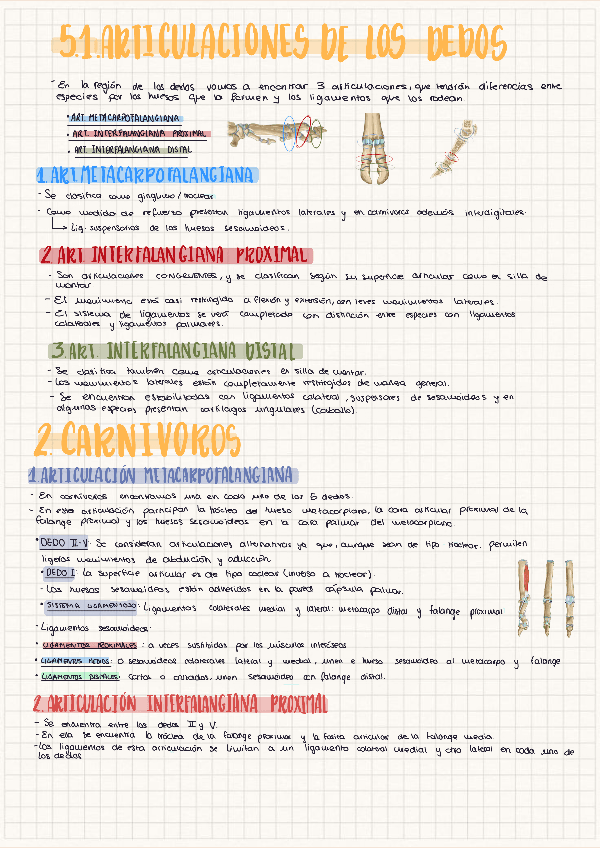 5.1. ARTICULACIONES DE LOS DEDOS
- En la región de los dedos vamos a encontrar 3 articulaciones, que tendrán diferencias entre
especies por los huesos que la forman y los ligamentos que los rodean
• ART. METACARPOFALANGIANA
• ART. INTERFALANGIANA PROXIMAL
• ART. INTERFALANGIANA DISTAL
1. ART. METACARPOFALANGIANA
- Se clasifica como gínglimo/troclear.
- Como medida de refuerzo presentan ligamentos laterales y en carnívoros además interdigitales.
Lig. suspensorios de los huesos sesamoideos.
2. ART. INTERFALANGIANA PROXIMAL
- Son articulaciones CONGRUENTES, y se clasifican según su superficie articular como en silla de
montar
- El movimiento está casi restringido a flexión y extensión, con leves movimientos laterales.
- El sistema de ligamentos se verá completado con distinción entre especies con ligamentos
colaterales y ligamentos palmares.
3. ART. INTERFALANGIANA DISTAL
- Se clasifica también como articulaciones en silla de montar.
- Los movimientos laterales están completamente restringidos de manera general.
- Se encuentran estabilizadas con ligamentos colateral, suspensores de sesamoideos y en
algunas especies presentan cartílagos ungulares (caballo).
2. CARNIVOROS
1. ARTICULACIÓN METACARPOFALANGIANA
- En carnívoros encontramos una en cada uno de los 5 dedos.
- En esta articulación participan la tróclea del hueso metacarpiano, la cara articular proximal de la
falange proximal y los huesos sesamoideos en la cara palmar del metacarpiano.
• DEDO II-V: Se consideran articulaciones alternativas ya que, aunque sean de tipo troclear, permiten
ligeros movimientos de abducción y aducción.
• DEDO I: la superficie articular es de tipo coclear (inverso a troclear).
- Los huesos sesamoideos están adheridos en la pared cápsula palmar.
• SISTEMA LIGAMENTOSO: Ligamentos colaterales medial y lateral: metacarpo distal y falange proximal
- Ligamentos sesamoideos:
• LIGAMENTOS PROXIMALES: a veces sustituidos por los músculos interóseos
• LIGAMENTOS MEDIOS: o sesamoideos colaterales lateral y medial, unen e hueso sesamoideo al metacarpo y falange
• LIGAMENTOS DISTALES: cortos o cruzados, unen sesamoideo con falange distal.
2. ARTICULACIÓN INTERFALANGIANA PROXIMAL
- Se encuentra entre los dedos II y V.
- En ella se encuentra la tróclea de la falange proximal y la fosita articular de la falange media.
- Los ligamentos de esta articulación se limitan a un ligamento colateral medial y otro lateral en cada uno de
los dedos